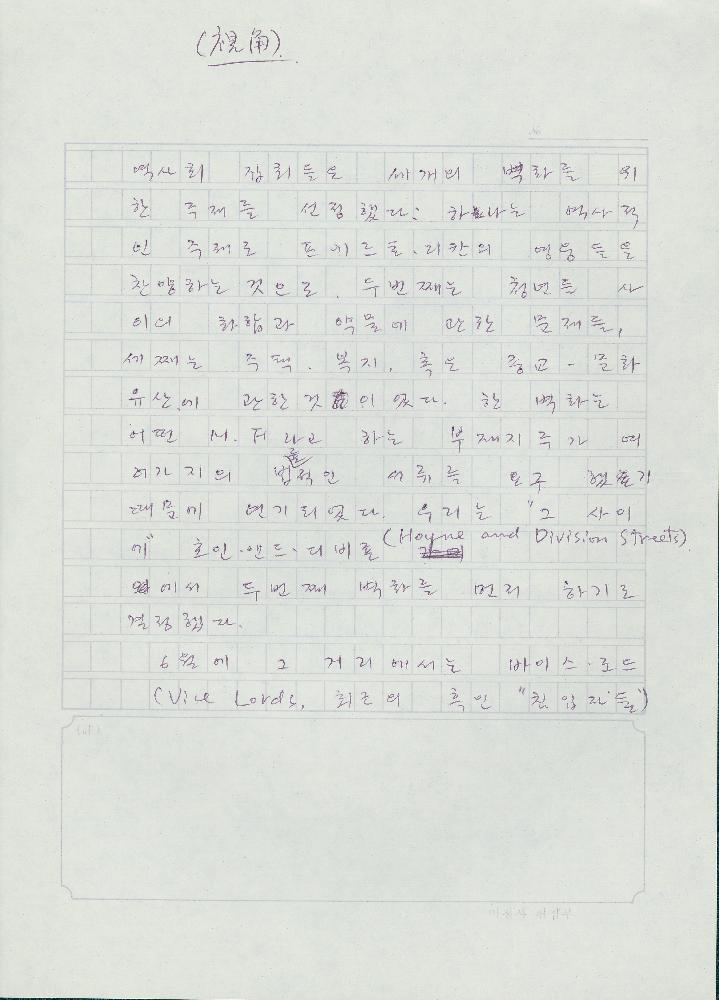 (視角)
역사회 집회들은 세개의 벽화를 위
한 주제를 선정했다: 하나는 역사적
인 주제로 푸에르토.리칸의 영웅들을
찬양하는 것으로, 두번째는 청년들 사
이의 화합과 약물에 관한 문제들,
세째는 주택, 복지, 혹은 종교-문화
유산에 관한것이었다. 한 벽화는
어떤 M.T 라고 하는 부재지주가 여
러가지의 법률적인 서류를 요구 했기
때문에 연기되었다. 우리는 "그 사이
에" 호인·앤드·디비죤 (Hoyne and Division Streets)
에서 두번째 벽화를 먼저 하기로
결정했다.
6월에 그 거리에서는 바이스·로드
(Vice Lords, 최근의 흑인 "침입자들")